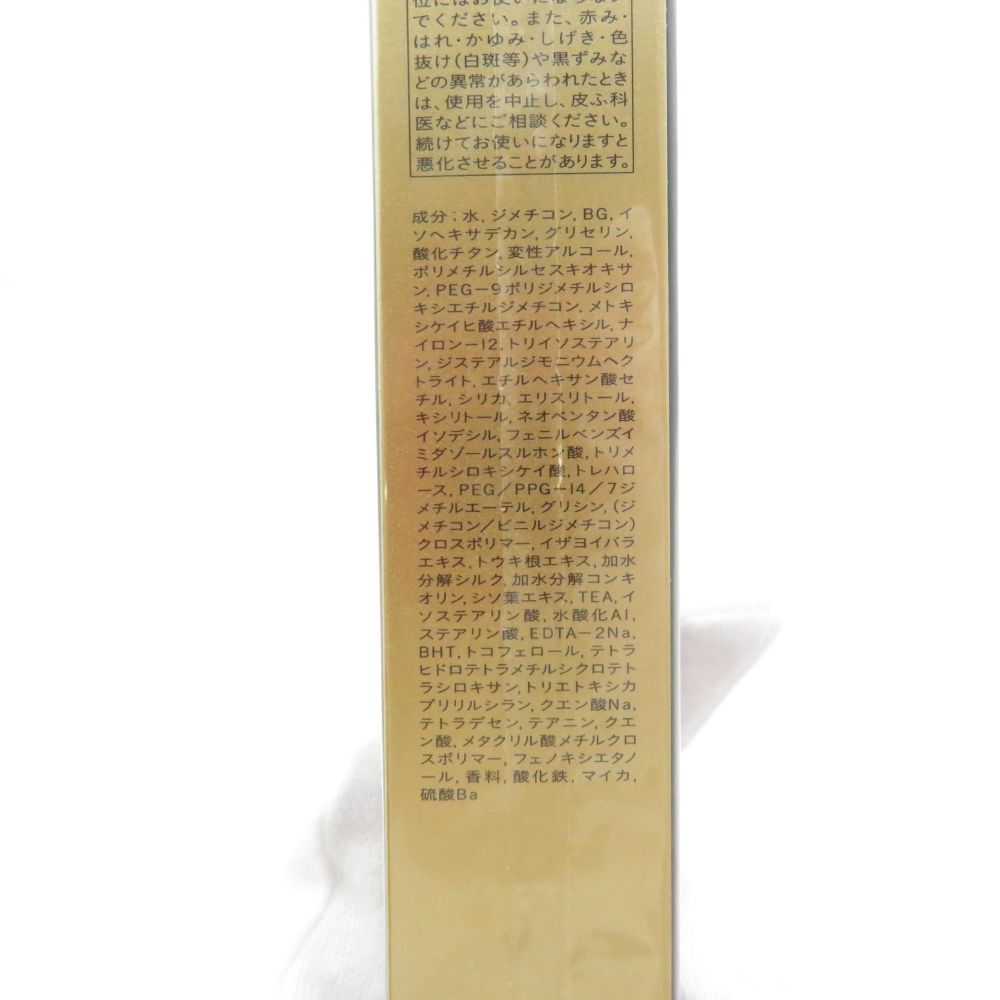 位にはお使いにならない
でください。また、赤み・
はれ・かゆみ・しげき・色
抜け(白斑等)や黒ずみな
どの異常があらわれたとき
は、使用を中止し、皮ふ科
医などにご相談ください。
続けてお使いになりますと
悪化させることがあります。
成分；水, ジメチコン, BG, イ
ソヘキサデカン, グリセリン,
酸化チタン, 変性アルコール,
ポリメチルシルセスキオキサ
ン, PEG-9ポリジメチルシロ
キシエチルジメチコン, メトキ
シケイヒ酸エチルヘキシル, ナ
イロン-12, トリイソステアリ
ン, ジステアルジモニウムヘク
トライト, エチルヘキサン酸セ
チル, シリカ, エリスリトール,
キシリトール, ネオペンタン酸
イソデシル, フェニルベンズイ
ミダゾールスルホン酸, トリメ
チルシロキシケイ酸, トレハロ
ース, PEG/PPG-14/7ジ
メチルエーテル, グリシン, (ジ
メチコン/ビニルジメチコン)
クロスポリマー, イザヨイバラ
エキス, トウキ根エキス, 加水
分解シルク, 加水分解コンキ
オリン, シソ葉エキス, TEA, イ
ソステアリン酸, 水酸化Al,
ステアリン酸, EDTA-2Na,
BHT, トコフェロール, テトラ
ヒドロテトラメチルシクロテト
ラシロキサン, トリエトキシカ
プリリルシラン, クエン酸Na,
テトラデセン, テアニン, クエ
ン酸, メタクリル酸メチルクロ
スポリマー, フェノキシエタノ
ール, 香料, 酸化鉄, マイカ,
硫酸Ba